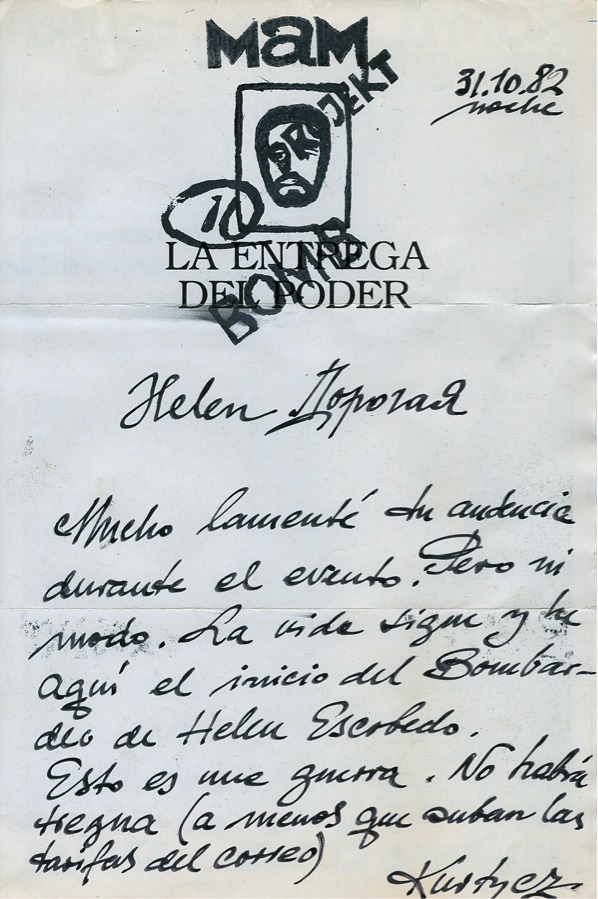 MAM
PROJEKT
31.10.82
noche
10
BOMB
LA ENTREGA
DEL PODER
Helen Дорогая
Mucho lamenté tu audencia
durante el evento. Pero ni
modo. La vida sigue y he
aquí el inicio del Bombar-
deo de Helen Escobedo.
Esto es una guerra. No habrá
tregua (a menos que suban las
tarifas del correo)
Kurtycz